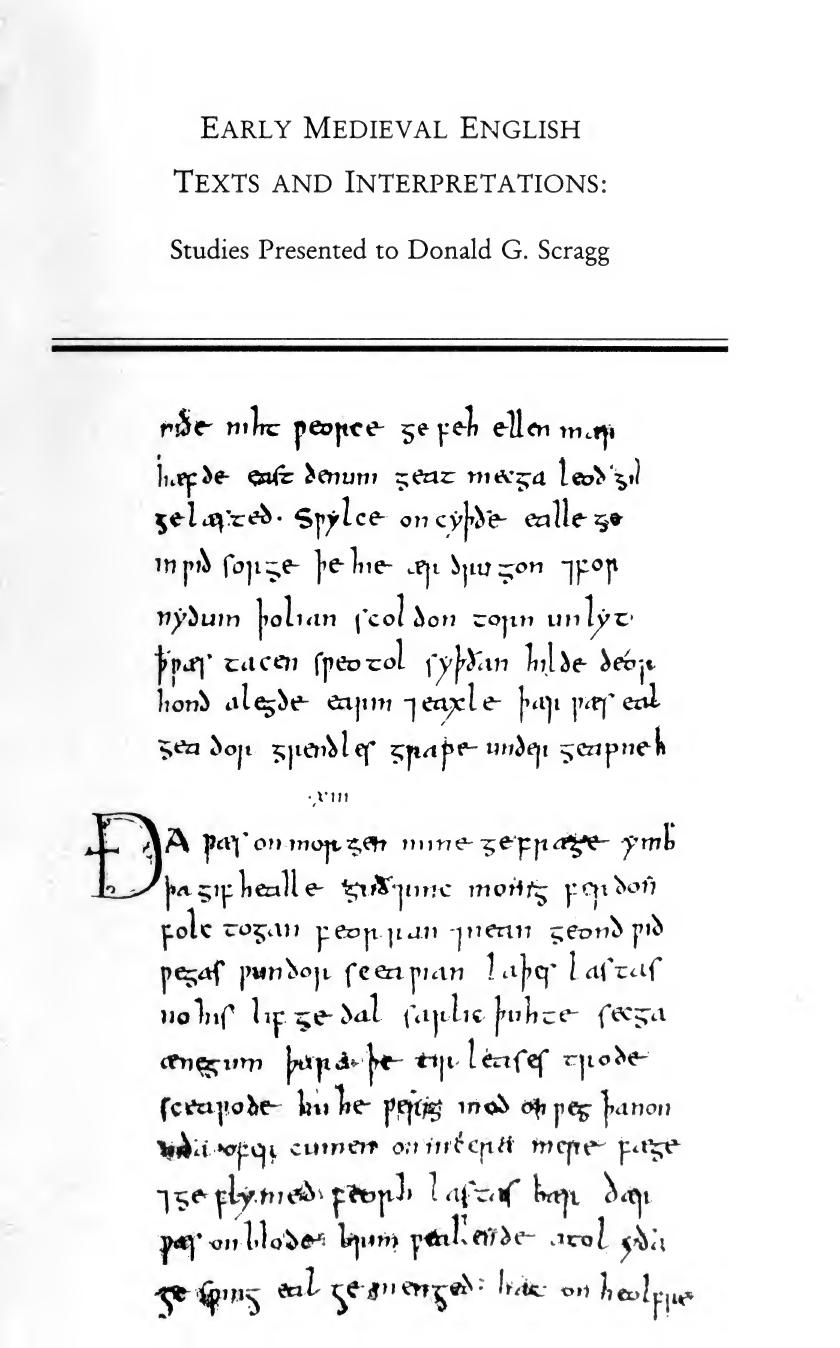 EARLY MEDIEVAL ENGLISH
TEXTS AND INTERPRETATIONS:
Studies Presented to Donald G. Scragg
niðe niht ƿeorce ge feh ellen mærþ
hæfde east denum geat mecga leod gilp
gelæsted· Sƿylce on cyþðe ealle ge
inƿid sorge þe hie ær drugon ⁊ for
nydum þolian scoldon torn unlyt
ꝥ ƿæs tacen sƿeotol syþðan hilde deor
hond alegde earm ⁊ eaxle þær ƿæs eal
gea dor grendles grape under geapne h
·xiii
ÐA ƿæs on morgen mine gefræge ymb
þa gif healle guðrinc monig ferdon
folc togan feorran ⁊ nean geond ƿid
ƿegas ƿundor sceaƿian laþes lastas
no his lif ge dal sarlic þuhte secga
ænegum þara þe tir leases trode
sceaƿode hu he ƿerig mod on ƿeg þanon
niða ofer cumen on nicera mere fæge
⁊ ge flymed feorh lastas bær ðær
ƿæs on blode brim ƿeallende atol yða
ge sƿing eal ge menged: hat on heolfre